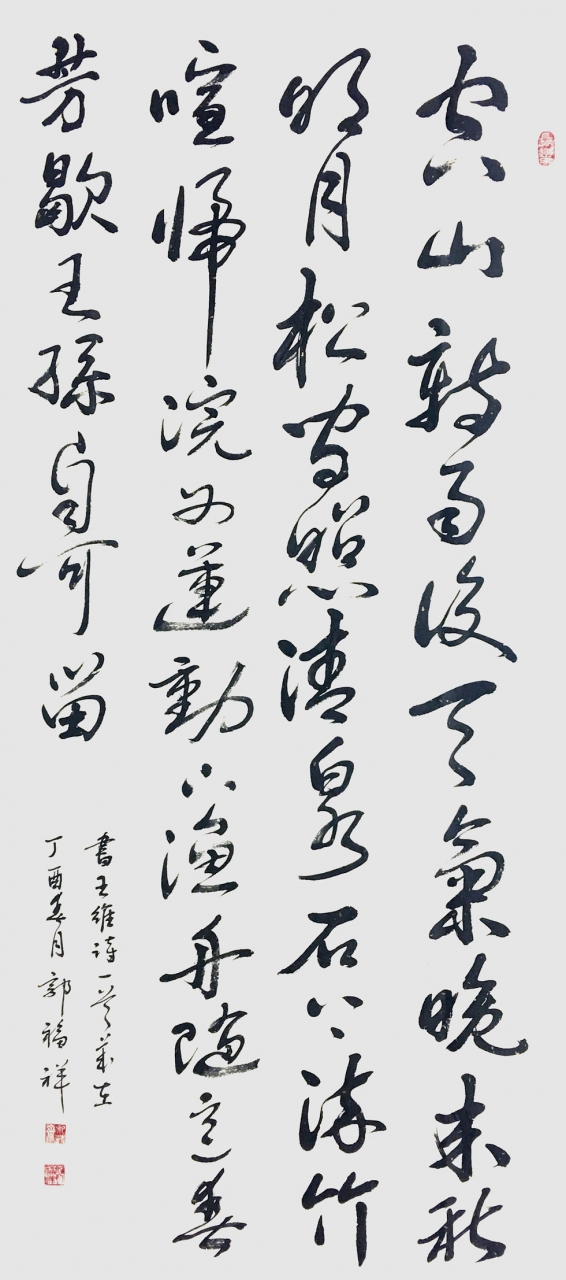 空山新雨後天氣晚來秋
明月松間照清泉石上流竹
喧歸浣女蓮動下漁舟隨意春
芳歇王孫自可留
書王維詩一首歲在
丁酉春月郭福祥